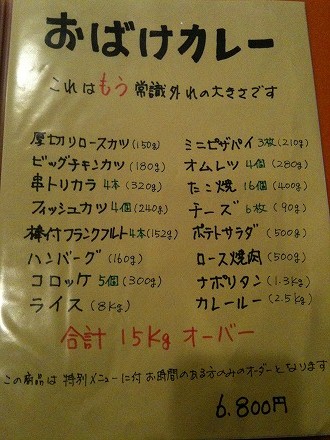 おばけカレー
これはもう常識外れの大きさです
厚切りロースカツ(150g)
ビッグチキンカツ(180g)
串トリカラ 4本(320g)
フィッシュカツ 4個(240g)
棒付フランクフルト4本(152g)
ハンバーグ(160g)
コロッケ 5個(300g)
ライス(8Kg)
ミニピザパイ 3枚(210g)
オムレツ 4個(280g)
たこ焼 16個(400g)
チーズ 6枚(90g)
ポテトサラダ(500g)
ロース焼肉(500g)
ナポリタン(1.3Kg)
カレールー(2.5Kg)
合計 15Kg オーバー
この商品は特別メニューに付お時間のある方のみのオーダーとなります
6.800円